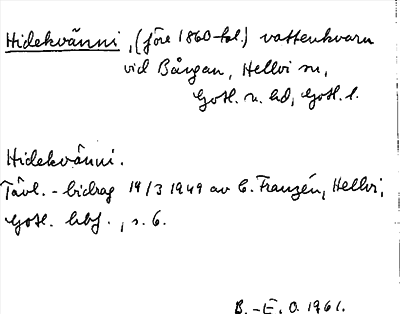 Hidekvänni, (före 1860-tal.) vattenkvarn
vid Bångan, Hellvi sn,
Gotl. n. hd, Gotl. l.
Hidekvänni.
Tävl.-bidrag 19/3 1949 av C. Franzén, Hellvi,
Gotl. hbf., s. 6.
B.-E. O. 1961.